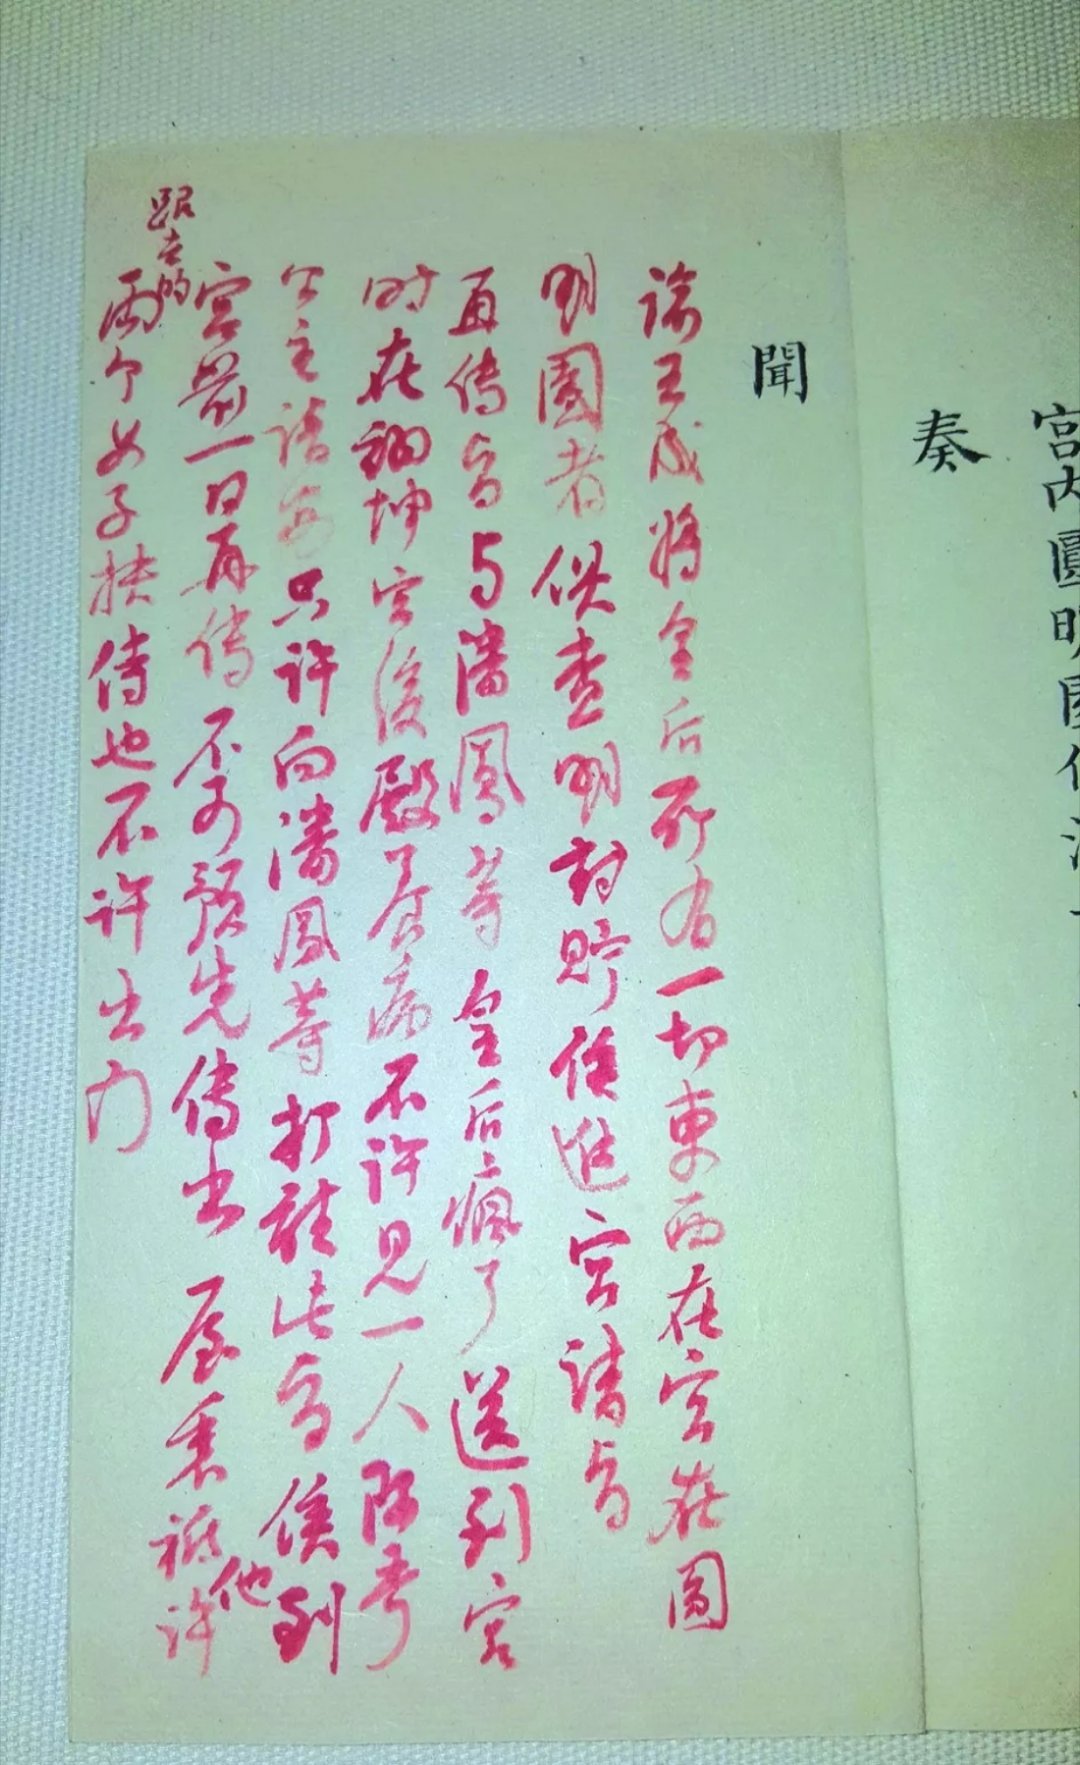 宮内圓明園
奏
聞
諭王成將皇后所有一切東西在宮在圓
明園者俱查明封貯候進宮請旨
再傳旨与潘鳳等皇后瘋了送到宮
时在翊坤宮後殿养病不許見一人阿哥
公主請安只許向潘鳳等打聽此旨候到
宮前一日再傳不可預先傳出屋裏祗許他
跟去的兩个女子扶侍也不許出门